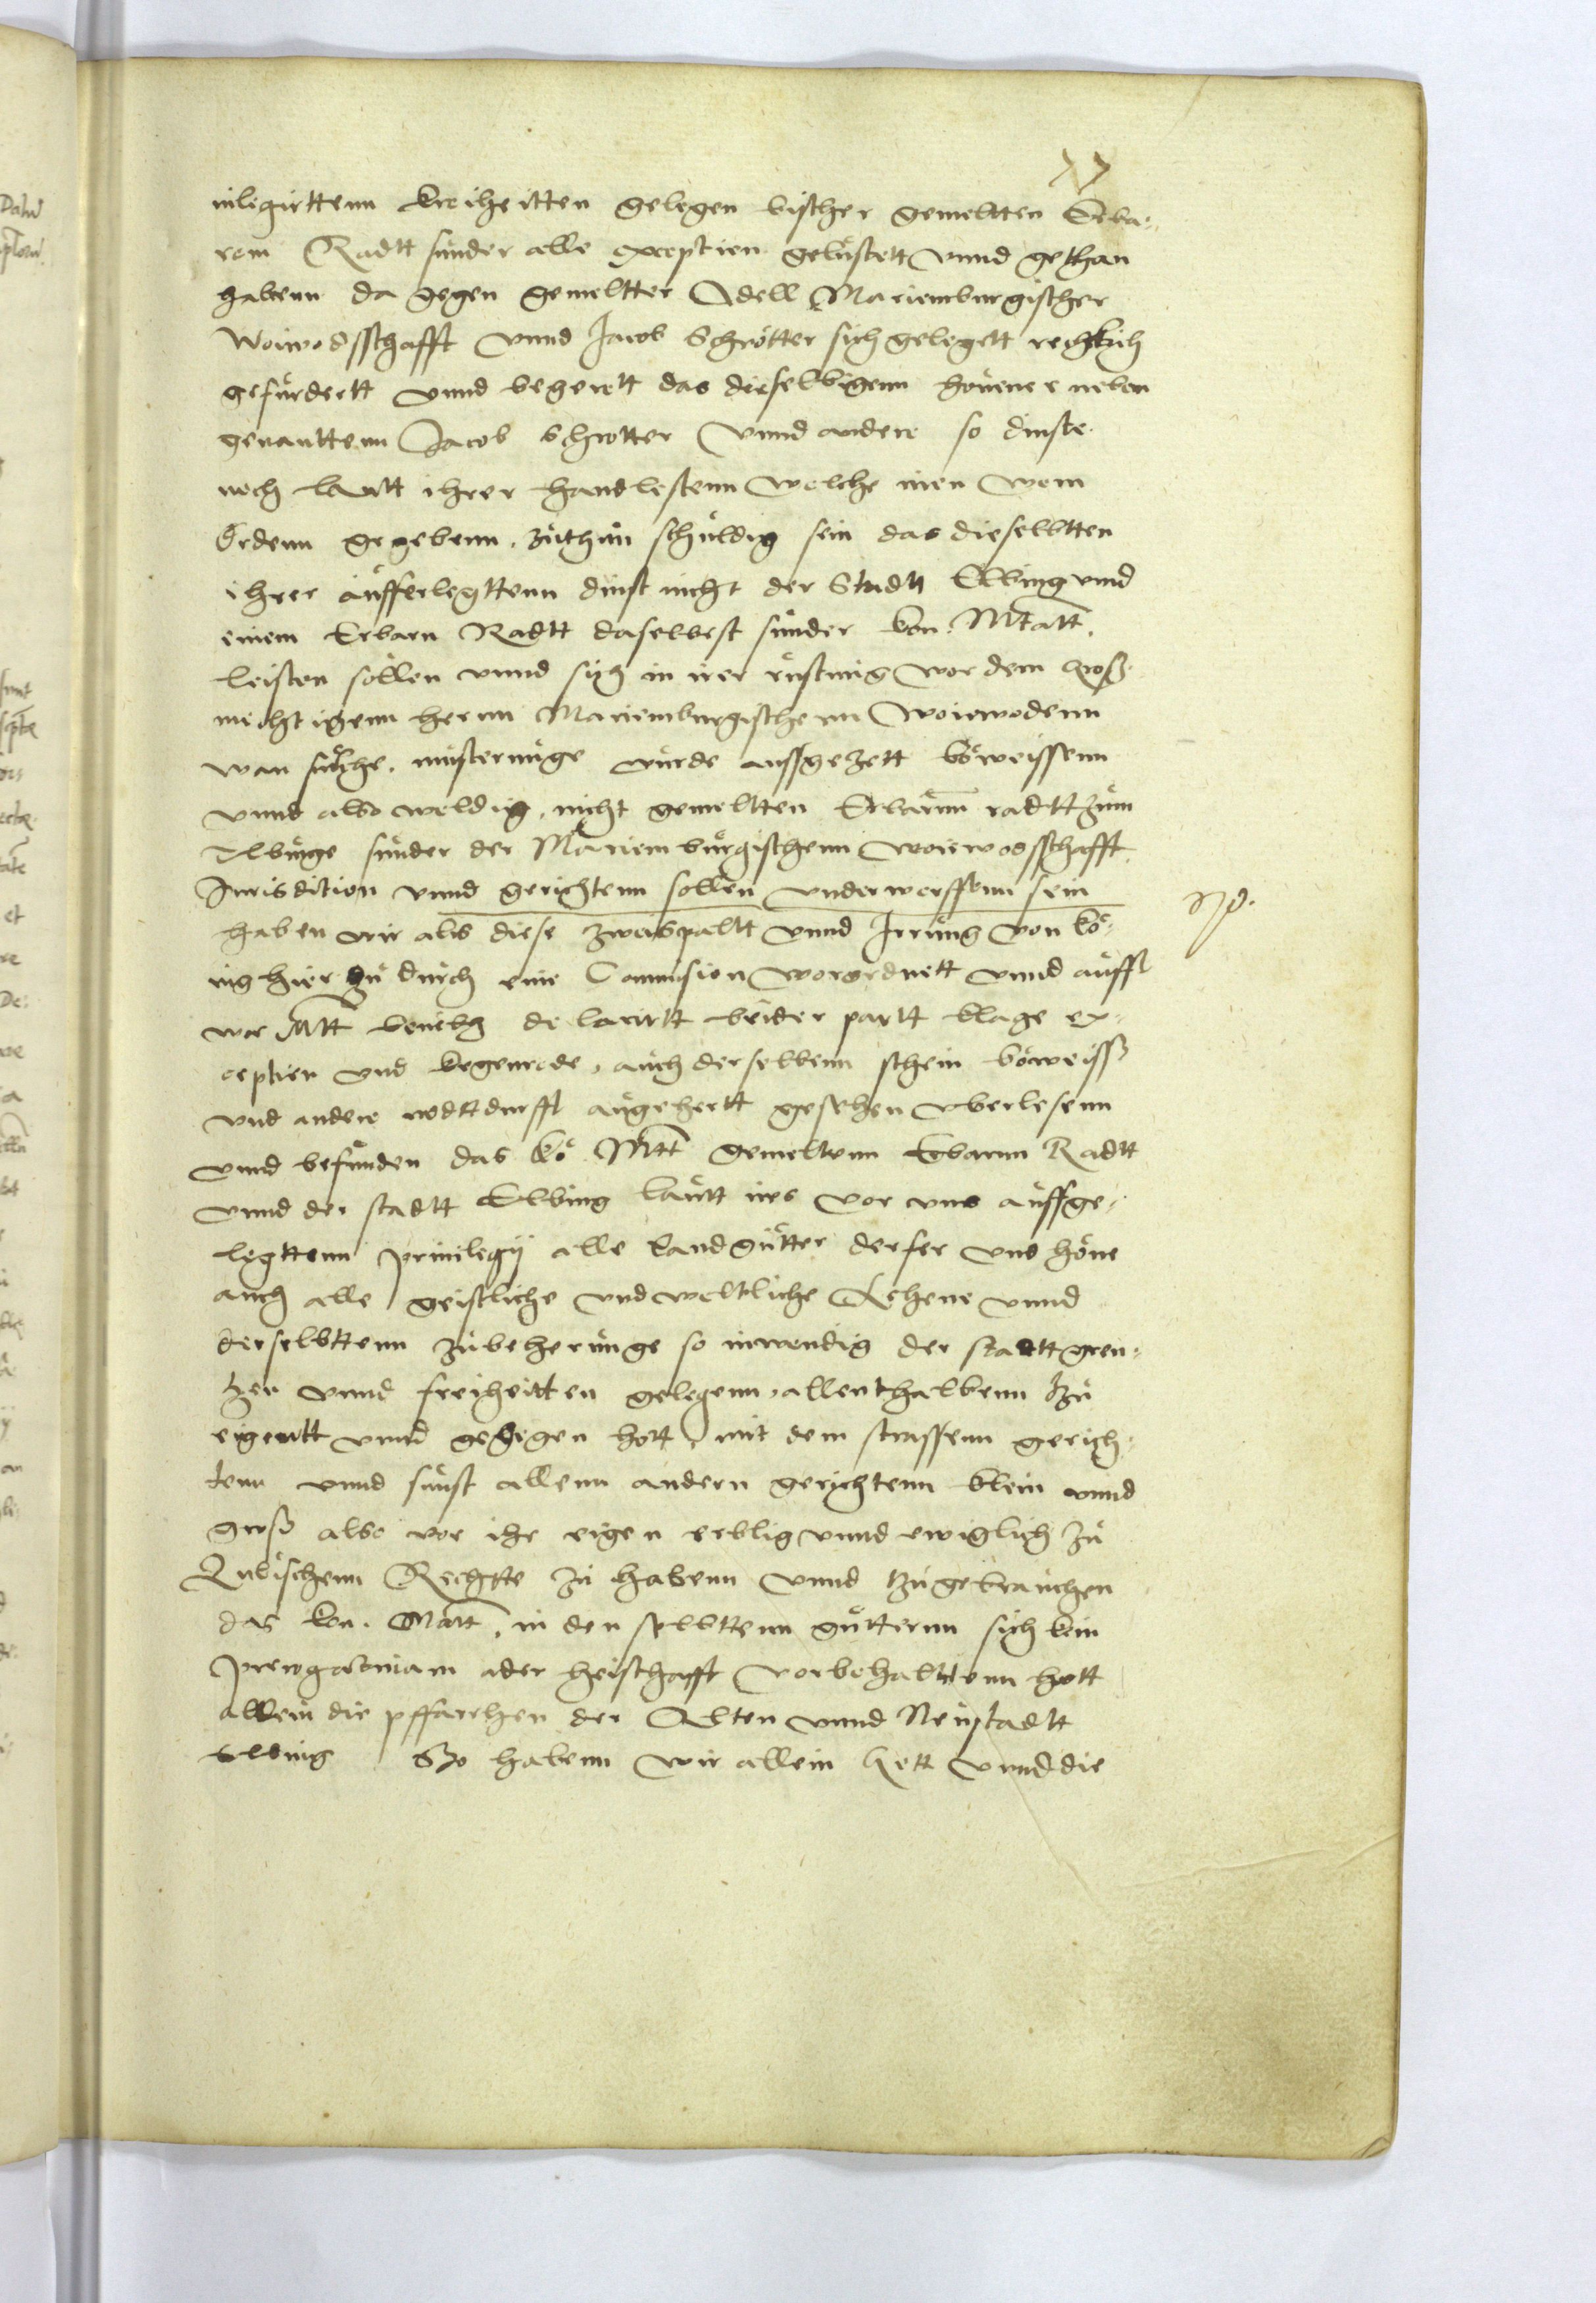 uilegirttenn kreiheitten gelegen bischer gemeltten Erba-
rem Radtt sunder alle exceptien geleistett vnnd gethan
habenn da gegen gemeltter Adell Mariemburgischer
Woiwodsschafft vnnd Jacob Schrötter sich gelegett rechtlich
gefürdertt vnnd begerett das dieselbigenn neben
genanttenn Jacob Schrotter vnnd andere so dinste
noch lautt ihrer handfestenn welche inen vom
Ordenn gegebenn, zuthun schuldig sein das dieselbtten
ihrer aufferlegttenn dinst nicht der Stadtt Elbing vnnd
einem Erbarn Radtt daselbest sunder kon. Mtatt.
leisten sollen vnnd sich in irer rustung vor dem Gros-
mechtigenn hernn Mariemburgischenn Woiwodenn
wan sulche, musterunge wurde aussgezett böweissenn
vnnd also weldig, nicht gemeltten Erbarnn radtt zum
Elbinge sunder der Mariemburgischenn woiwodsschafft
Jurisdition vnnd gerichtenn sollen vnderworffenn sein
haben wir als diese zweispaltt vnnd Irrung von kö-
nig hier zu durch eine Commision worordnett vnnd auffl
Mtt beuelh de lautt beider partt klage ex-
ceptien vnd kegenrede, auch derselbenn schein böweiss
vnd andere nodttdurfft angehertt gesehen vberlesenn
vnnd befunden das kö Mtt gemeltenn Erbarnn Radtt
vnnd der stadtt Elbing lautt ires vor vns auffge-
legttenn priuilegij alle landgütter derfer vnd höue
auch alle geistliche vnd weltliche Lehene vnnd
derselbttenn zubeherunge so inwendig der stadtt gren-
zen vnnd freiheitten gelegenn, allenthalbenn zu
eigentt vnnd gegegen hott, mit dem strassenn gerich-
tenn vnnd sunst allenn andern gerichtenn klein vnnd
gross also vor ihr eigen erblig vnnd ewiglich zu
Lubischenn Rechtte zu habenn vnnd zugebrauchen
das kon. Matt, in den selbttenn gutternn sich kein
ader heischafft vorbehalttenn hott
allein die pffarrhen der Alten vnnd Neustadtt
Elbing So habenn wir allein Gott vnnd die